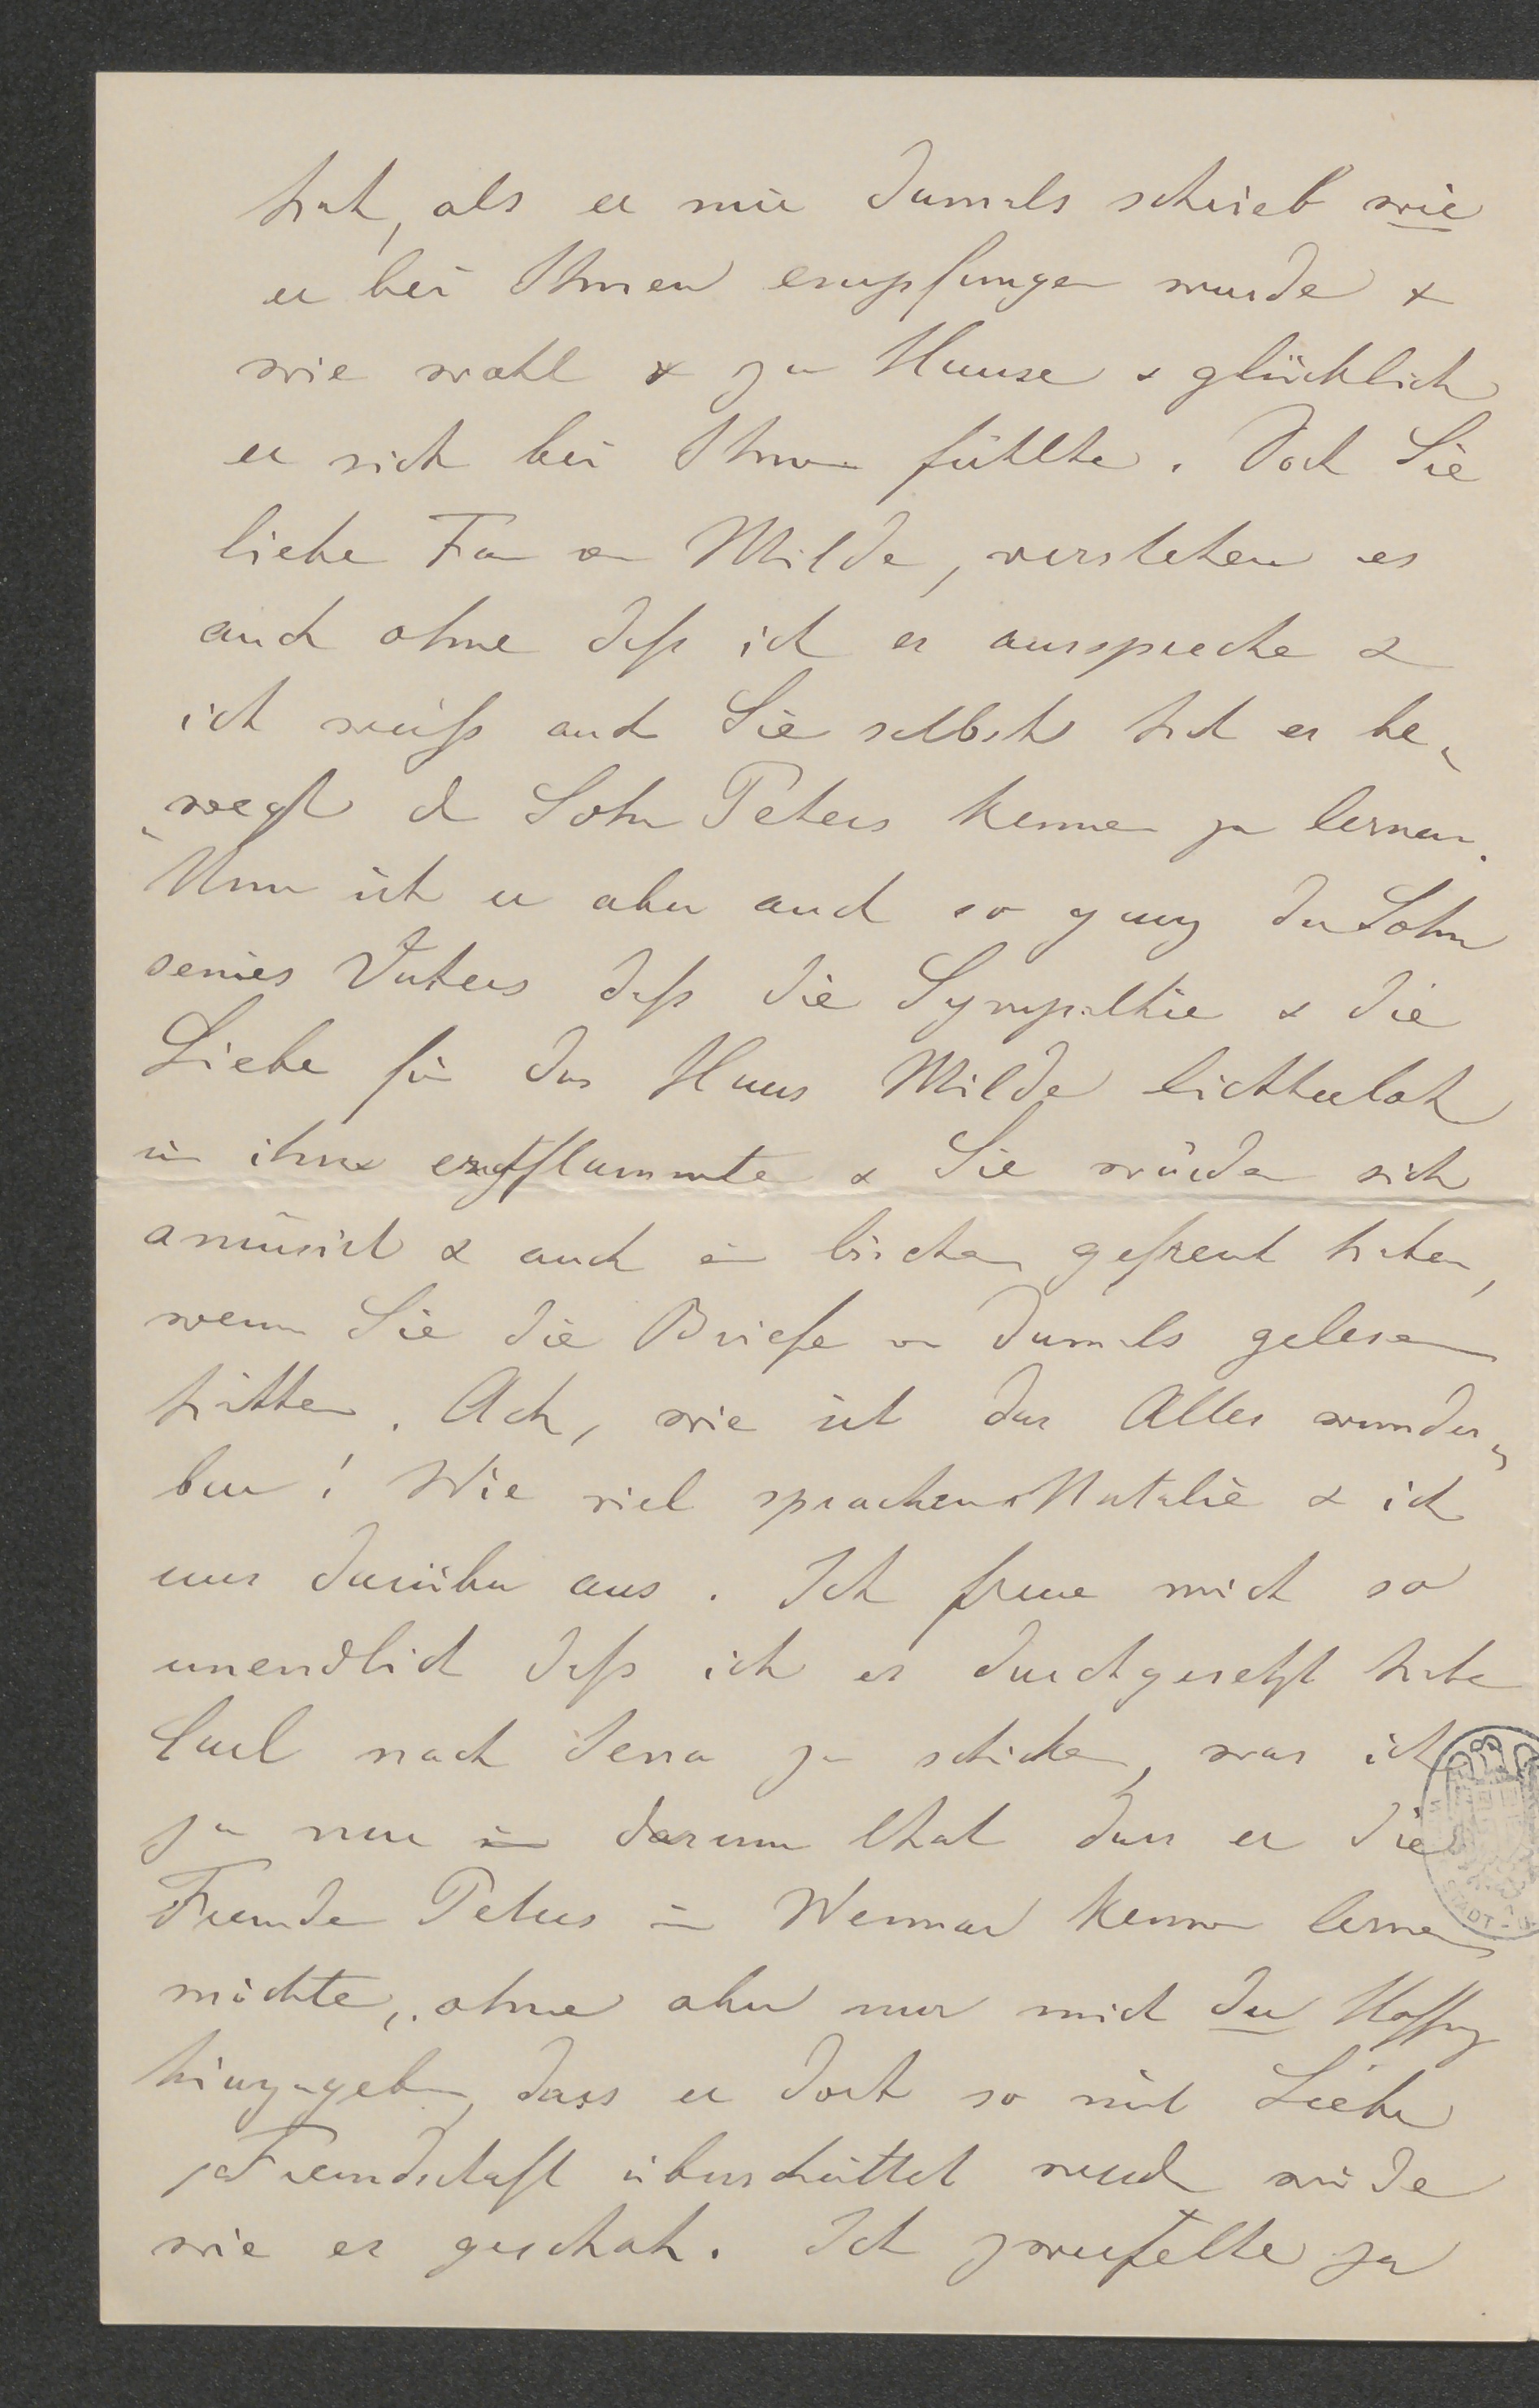 hat, als er mir damals schrieb wie
er bei Ihnen empfangen wurde &
wie wohl & zu Hause & glücklich
er sich bei Ihnen fühlte. Doch Sie
liebe Frau von Milde, verstehen es
auch ohne daß ich es ausspreche &
ich weiß auch Sie selbst hat es be„
„wegt den Sohn Peters kennen zu lernen.
Nun ist er aber auch so ganz der Sohn
seines Vaters daß die Sympathie & die
Liebe für das Haus Milde lichterloh
in ihm entflammte & Sie würden sich
amüsirt & auch ein bischen gefreut haben,
wenn Sie die Briefe von damals gelesen
hätten. Ach, wie ist das Alles wunder„
bar! Wie viel sprachen Natalie & ich
uns darüber aus. Ich freue mich so
unendlich daß ich es durchgesetzt habe
Carl nach Jena zu schicken, was ich
ja nur darum that dass er die
Freunde Peters in Weimar kennen lernen
möchte, ohne aber nur mich der Hoffnung
hinzugeben, dass er dort so mit Liebe
& Freundschaft überschüttet werden würde
wie es geschah. Ich zweifelte ja
STADT-